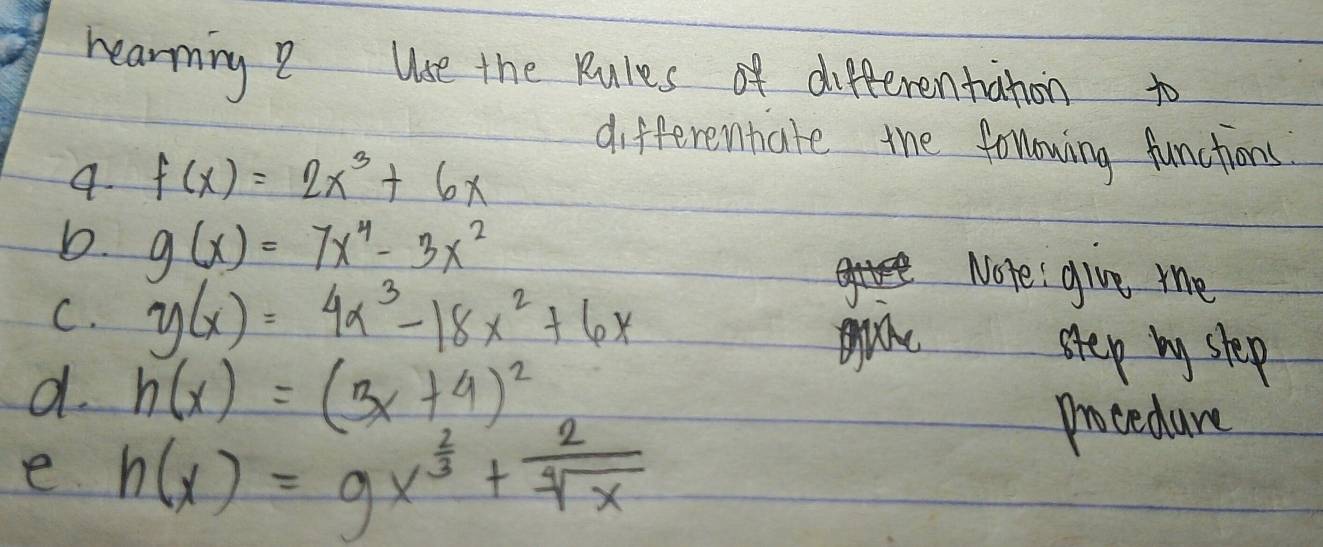 hearning 2 Use the Rules of differentiation to
differentiate the following functions.
a. f(x) = 2x³ + 6x
b. g(x) = 7x⁴ - 3x²
c. y(x) = 4x³ - 18x² + 6x
d. h(x) = (3x + 4)²
e. h(x) = 9x^(2/3) + 2/∜x
Note: give the
step by step
procedure